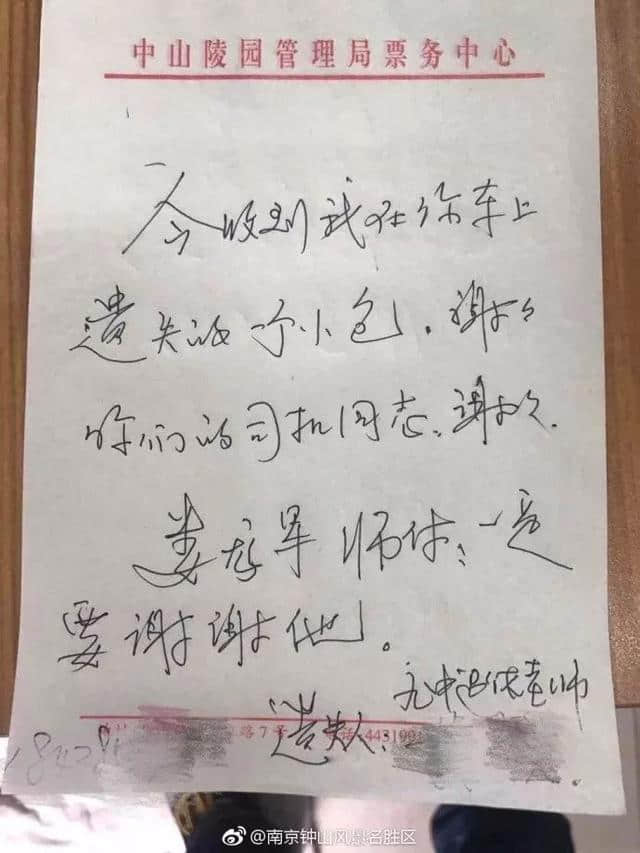 中山陵园管理局票务中心
今收到我在你车上
遗失的一个小包。谢谢
你们的司机同志。谢谢.
娄 军师付：一定
要谢谢他。
九中退休老师
遗失人：
路7号 443199
@南京钟山风景名胜区